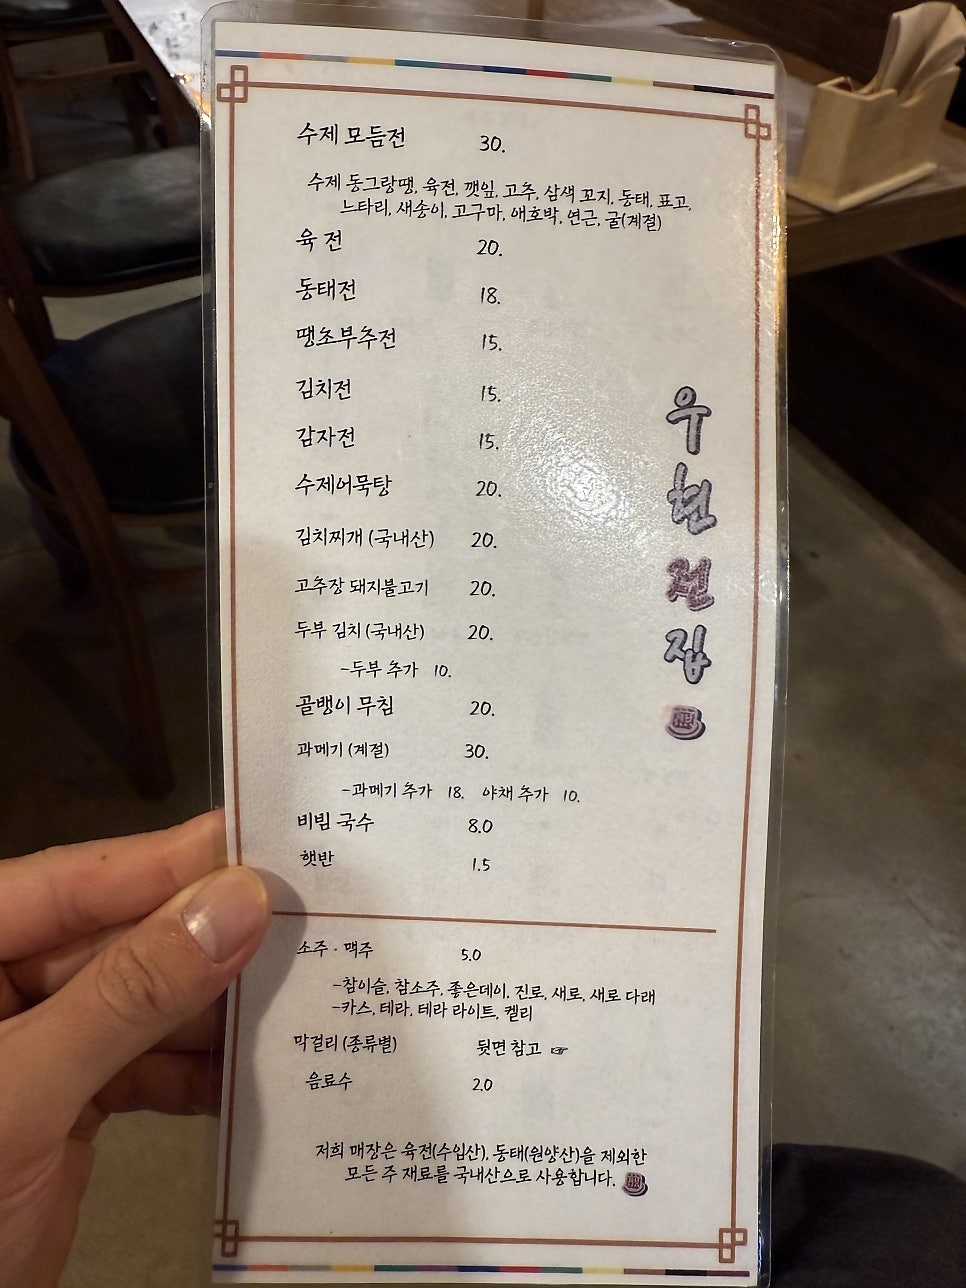 수제 모듬전 30.
수제 동그랑땡, 육전, 깻잎, 고추, 삼색 꼬지, 동태, 표고,
느타리, 새송이, 고구마, 애호박, 연근, 굴(계절)
육 전 20.
동태전 18.
땡초부추전 15.
김치전 15.
감자전 15.
수제어묵탕 20.
김치찌개 (국내산) 20.
고추장 돼지불고기 20.
두부 김치 (국내산) 20.
-두부 추가 10.
골뱅이 무침 20.
과메기 (계절) 30.
-과메기 추가 18. 야채 추가 10.
비빔 국수 8.0
햇반 1.5
우현전집
소주 · 맥주 5.0
-참이슬, 참소주, 좋은데이, 진로, 새로, 새로 다래
-카스, 테라, 테라 라이트, 켈리
막걸리 (종류별) 뒷면 참고 ☞
음료수 2.0
저희 매장은 육전(수입산), 동태(원양산)을 제외한
모든 주 재료를 국내산으로 사용합니다.